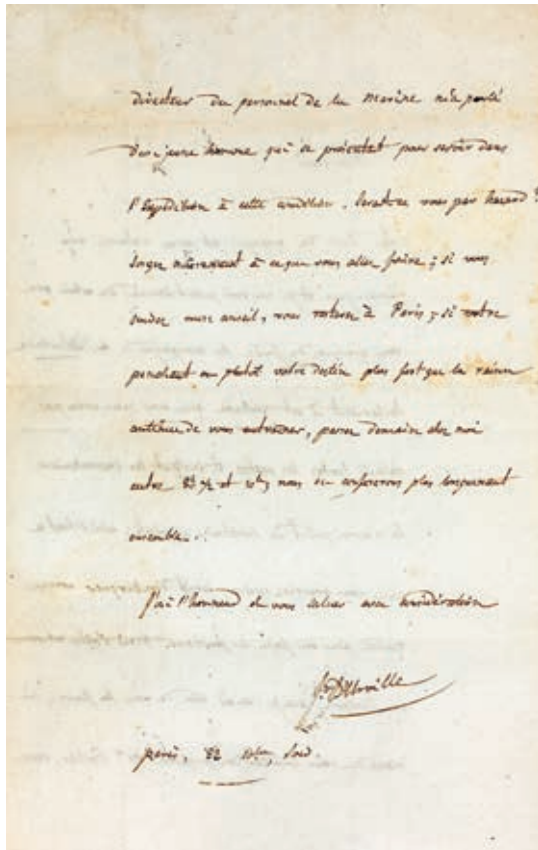 directeur du personnel de la marine m'a parlé
d'un jeune homme qui se présentait pour servir dans
l'expédition à cette condition. Seraitce vous par hazard ?
Songez mûrement à ce que vous allez faire ; si vous
suivez mon conseil, vous resterez à Paris ; si votre
penchant ou plutôt votre destin plus fort que la raison
continue de vous entraîner, passez demain chez moi
entre 8 ½ et nous en causerons plus longuement
ensemble.
J'ai l'honneur de vous saluer avec considération
D'Urville
paris, soir